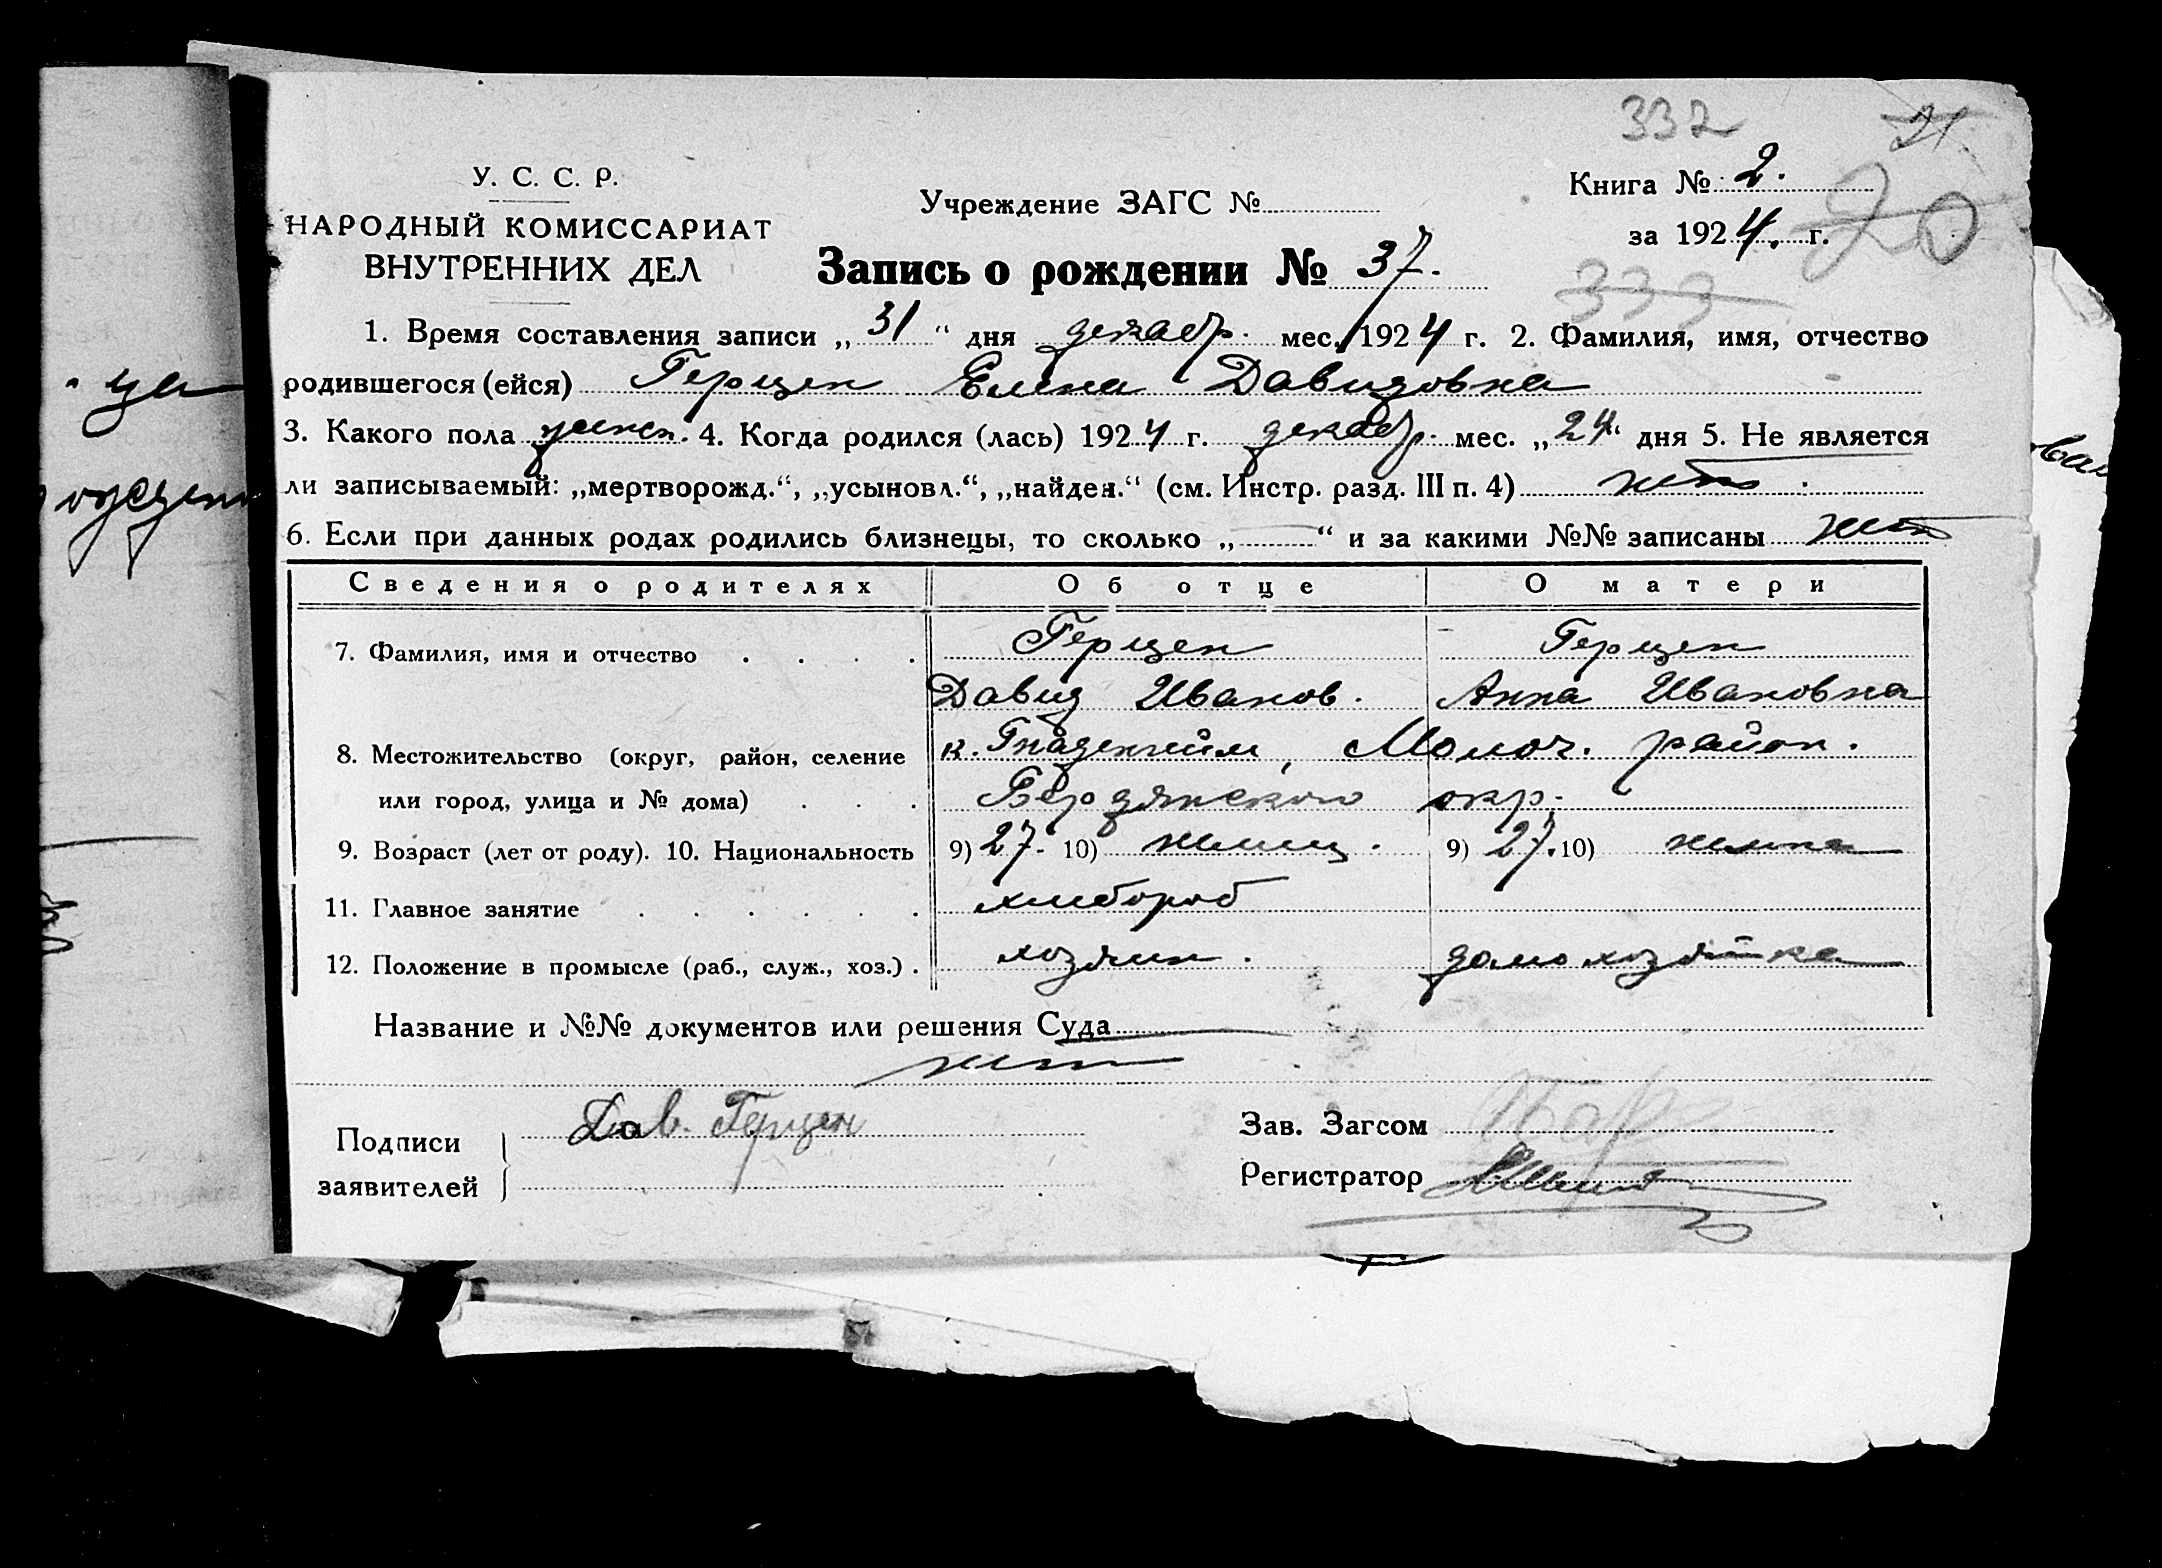 332
21
У. С. С. Р.
НАРОДНЫЙ КОМИССАРИАТ
ВНУТРЕННИХ ДЕЛ
Учреждение ЗАГС №
Книга № 2.
за 1924. г.
20
Запись о рождении № 37.
333
1. Время составления записи „31“ дня декабр. мес. 1924 г. 2. Фамилия, имя, отчество
родившегося (ейся) Герцен Елена Давидовна
3. Какого пола женск. 4. Когда родился (лась) 1924 г. декабр. мес. „24“ дня 5. Не является
ли записываемый: „мертворожд.“, „усыновл.“, „найден.“ (см. Инстр. разд. III п. 4) нет.
6. Если при данных родах родились близнецы, то сколько „—“ и за какими №№ записаны нет
Сведения о родителях Об отце О матери
7. Фамилия, имя и отчество . . . . Герцен Герцен
Давид Иванов. Анна Ивановна
8. Местожительство (округ, район, селение к. Гнаденгейм, Молоч. район.
или город, улица и № дома) . . . Бердянского окр.
9. Возраст (лет от роду). 10. Национальность 9) 27. 10) немец. 9) 27. 10) немка
11. Главное занятие . . . . . . хлебороб
12. Положение в промысле (раб., служ., хоз.) . хозяин. домохозяйка
Название и №№ документов или решения Суда
нет
Подписи
заявителей
Дав. Герцен
Зав. Загсом
Регистратор